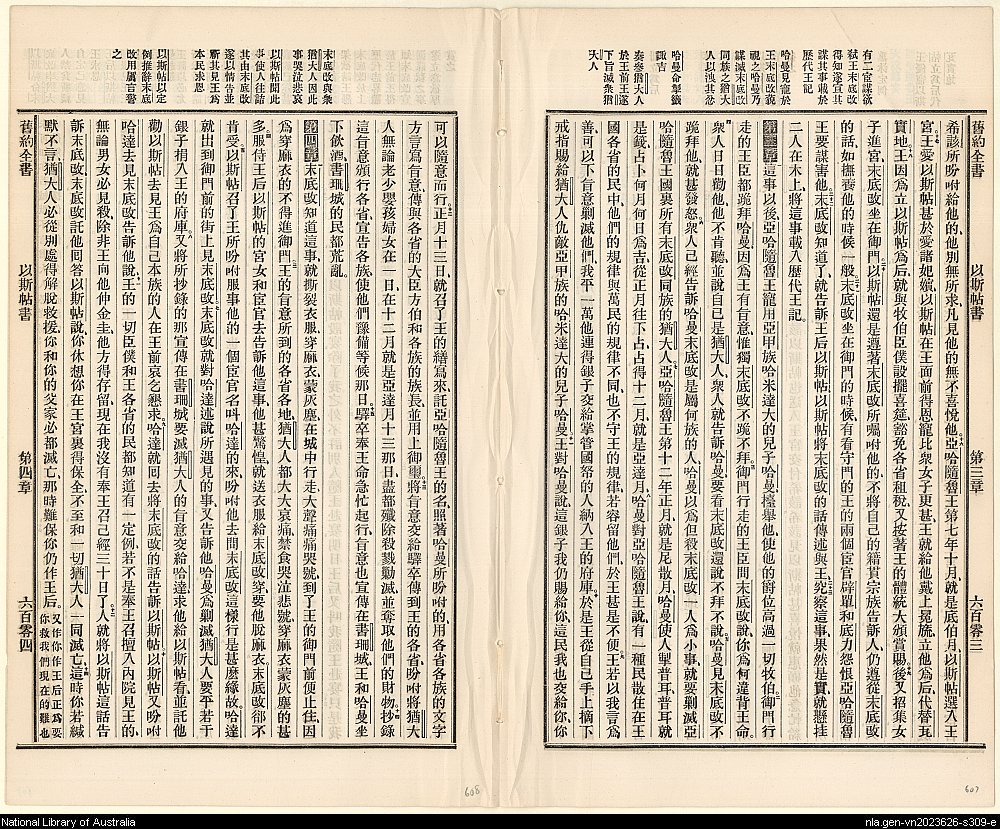 舊約全書 以斯帖書 第三章 六百零三
有二宦謀欲
弑王末底改
得知遂宣其
謀其事載於
歷代王記
哈曼見寵於
王末底改藐
視之哈曼乃
謀滅末底改
同族之猶大
人以洩其忿
哈曼命掣籤
諏吉
奏參猶大人
於王前王遂
下旨滅衆猶
大人
希該所吩咐給他的、他別無所求、凡見他的無不喜悅他、亞哈隨魯王第七年十月、就是底伯月、以斯帖選入王
宮、王愛以斯帖甚於愛諸妃嬪、以斯帖在王面前得恩寵比衆女子更甚、王就給他戴上冕旒、立他為后、代替瓦
實地、王因為立以斯帖為后、就與牧伯臣僕設擺喜筵、豁免各省租稅、又按著王的體統大頒賞賜、後又招集女
子進宮、末底改坐在御門、以斯帖還是遵著末底改所囑咐他的、不將自己的籍貫宗族告訴人、仍遵從末底改
的話、如撫養他的時候一般、末底改坐在御門的時候、有看守門的王的兩個臣宦辟罕和底力怨恨亞哈隨魯
王、要謀害他、末底改知道了、就告訴王后以斯帖、以斯帖將末底改的話傳述與王、究察這事、果然是實、就懸挂
二人在木上、將這事載入歷代王記。
第三章 這事以後、亞哈隨魯王寵用亞甲族哈米達大的兒子哈曼、擡舉他、使他的爵位高過一切牧伯、御門行
走的王臣都跪拜哈曼、因為王有旨意、惟獨末底改不跪不拜、御門行走的王臣問末底改說、你為何違背王命、
衆人日日勸他、他不肯聽、並說自己是猶大人、衆人就告訴哈曼、要看末底改還說不拜不說、哈曼見末底改不
跪拜他、就甚發怒、衆人已經告訴哈曼末底改是屬何族的人、哈曼以為但殺末底改一人為小事、就要剿滅亞
哈隨魯王國裏所有末底改同族的猶大人、亞哈隨魯王第十二年正月、就是尼散月、哈曼使人掣普耳、普耳就
是籤、占卜何月何日為吉、從正月往下占、占得十二月、就是亞達月、哈曼對亞哈隨魯王說、有一種民散住在王
國各省的民中、他們的規律與萬民的規律不同、也不守王的規律、若容留他們、於王甚是不便、王若以我言為
善、可以下旨意剿滅他們、我平一萬他連得銀子交給掌管國帑的人、納入王的府庫、於是王從自己手上摘下
戒指、賜給猶大人仇敵亞甲族的哈米達大的兒子哈曼、王對哈曼說、這銀子我仍賜給你、這民我也交給你、你
可以隨意而行、正月十三日、就召了王的繕寫來、託亞哈隨魯王的名、照著哈曼所吩咐的、用各省各族的文字
方言寫為旨意、傳與各省的大臣方伯和各族的族長、並用上御璽、將旨意交給驛卒、傳到王的各省、吩咐將猶大
人無論老少嬰孩婦女、在一日、在十二月就是亞達月十三那日、盡都殲除殺戮勦滅、並奪取他們的財物、抄錄
這旨意頒行各省、宣告各族、使他們豫備等候那日、驛卒奉王命急忙起行、旨意也宣傳在書珊城、王和哈曼坐
下飲酒、書珊城的民都荒亂。
第四章 末底改知道這事、就撕裂衣服、穿麻衣蒙灰塵、在城中行走、大聲痛痛哭號、到了王的御門前便止住、因
為穿麻衣的不得進御門、王的旨意所到的各省各地、猶大人都大大哀痛、禁食哭泣悲號、穿麻衣蒙灰塵的甚
多、服侍王后以斯帖的宮女和宦官去告訴他這事、他甚驚惶、就送衣服給末底改穿、要他脫麻衣、末底改卻不
肯受、以斯帖召了王所吩咐服事他的一個宦官名叫哈達的來、吩咐他去問末底改、這樣行是甚麽緣故、哈達
就出到御門前的街上見末底改、末底改就對哈達述說所遇見的事、又告訴他哈曼為剿滅猶大人要平若干
銀子捐入王的府庫、又將所抄錄的那宣傳在書珊城要滅猶大人的旨意交給哈達、求他給以斯帖看、並託他
勸以斯帖去見王、為自己本族的人在王前哀乞懇求、哈達就囘去將末底改的話告訴以斯帖、以斯帖又吩咐
哈達去見末底改、告訴他說、王的一切臣僕和王各省的民都知道有一定例、若不是奉王召、擅入內院見王的、
無論男女必見殺除、非王向他伸金圭、他方得存留、現在我沒有奉王召已經三十日了、人就將以斯帖這話告
訴末底改、末底改託他囘答以斯帖說、你休想你在王宮裏得保全、不至和一切猶大人一同滅亡、這時你若緘
默不言、猶大人必從別處得解脫救援、你和你的父家必都滅亡、那時難保你仍作王后。又作你作王后正為要你救我們現在的難也
末底改與衆
猶大人因此
事哭泣悲哀
以斯帖聞此
事使人往詰
其由末底改
遂以情告並
新其見王為
本民求恩
以斯帖以定
例推辭末底
改用厲言警
之
舊約全書 以斯帖書 第四章 六百零四
608
607
National Library of Australia
nla.gen-vn2023626-s309-e